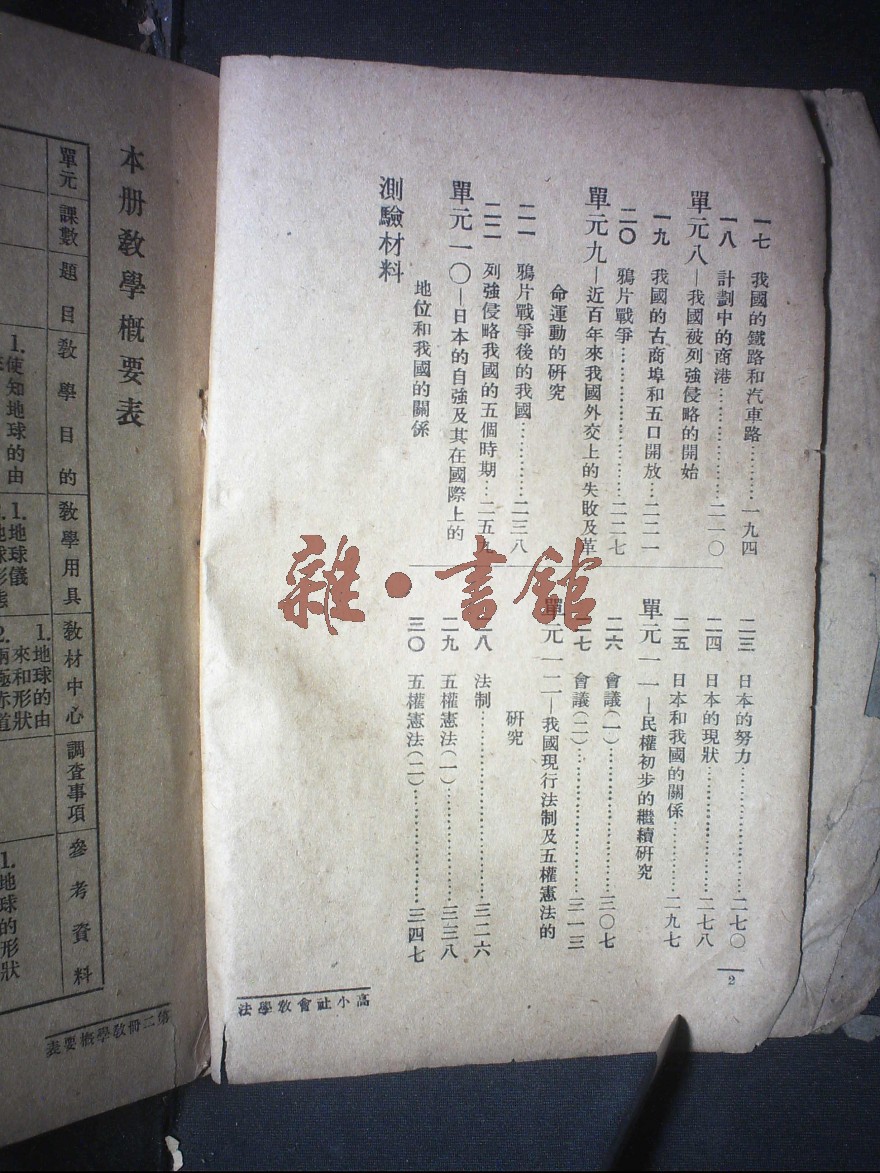 一七 我國的鐵路和汽車路………一九四
一八 計劃中的商港………………二一〇
單元八—我國被列強侵略的開始
一九 我國的古商埠和五口開放…二二一
二〇 鴉片戰爭……………………二二七
單元九—近百年來我國外交上的失敗及革
命運動的研究
二一 鴉片戰爭後的我國…………二三八
二二 列強侵略我國的五個時期…二五
單元一〇—日本的自強及其在國際上的
地位和我國的關係
測驗材料
二三 日本的努力…………………二七〇
二四 日本的現狀…………………二七八
二五 日本和我國的關係…………二九七
單元一一—民權初步的繼續研究
二六 會議(一)……………………三〇七
二七 會議(二)……………………三一三
單元一二—我國現行法制及五權憲法的
研究
二八 法制…………………………三二六
二九 五權憲法(一)………………三三八
三〇 五權憲法(二)………………三四七
2
高小社會教學法
雜·書館
本册教學概要表
單元
課數
題目
教學目的
教學用具
教材中心
調查事項
參考資料
1.使知地球的由
1.地球儀
地球形態
1.地球的由
來和形狀
2.兩極赤道
1.地球的形狀
第二冊教學概要表